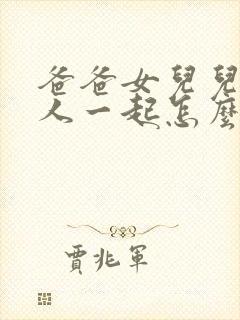 爸爸女兒兒
人一起怎麼
賈兆軍